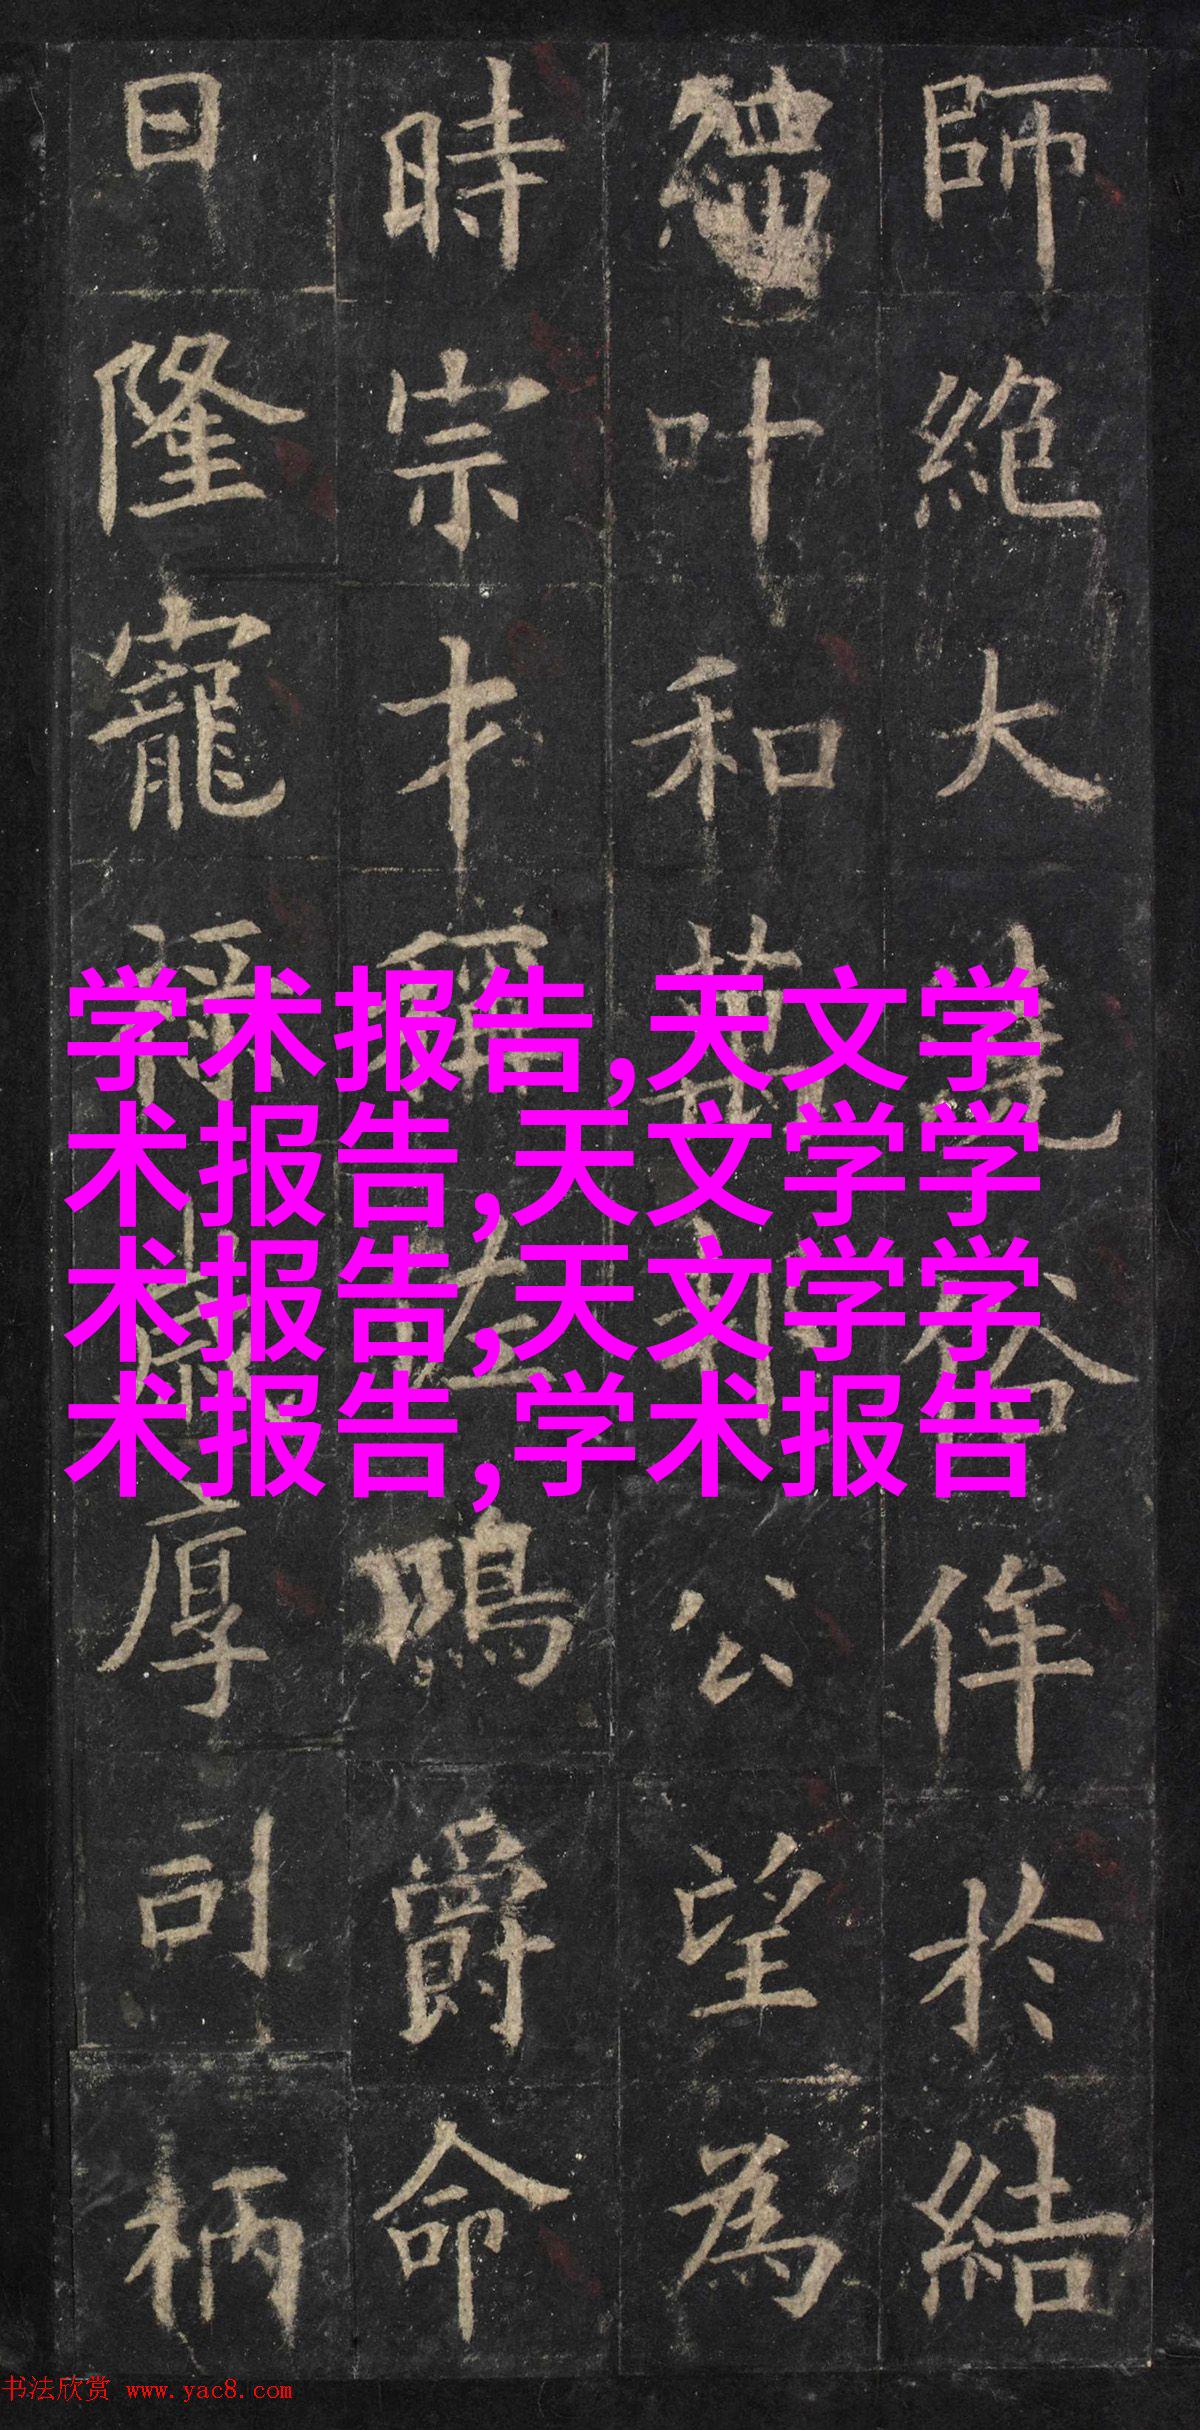 師絶大俗侔於結
叶和萬邦公望為
時宗才稱佐鳴爵命
日隆寵厚司柄
学术报告,天文学
术报告,天文学学
术报告,天文学学
术报告,学术报告
书法欣赏 www.yac8.com